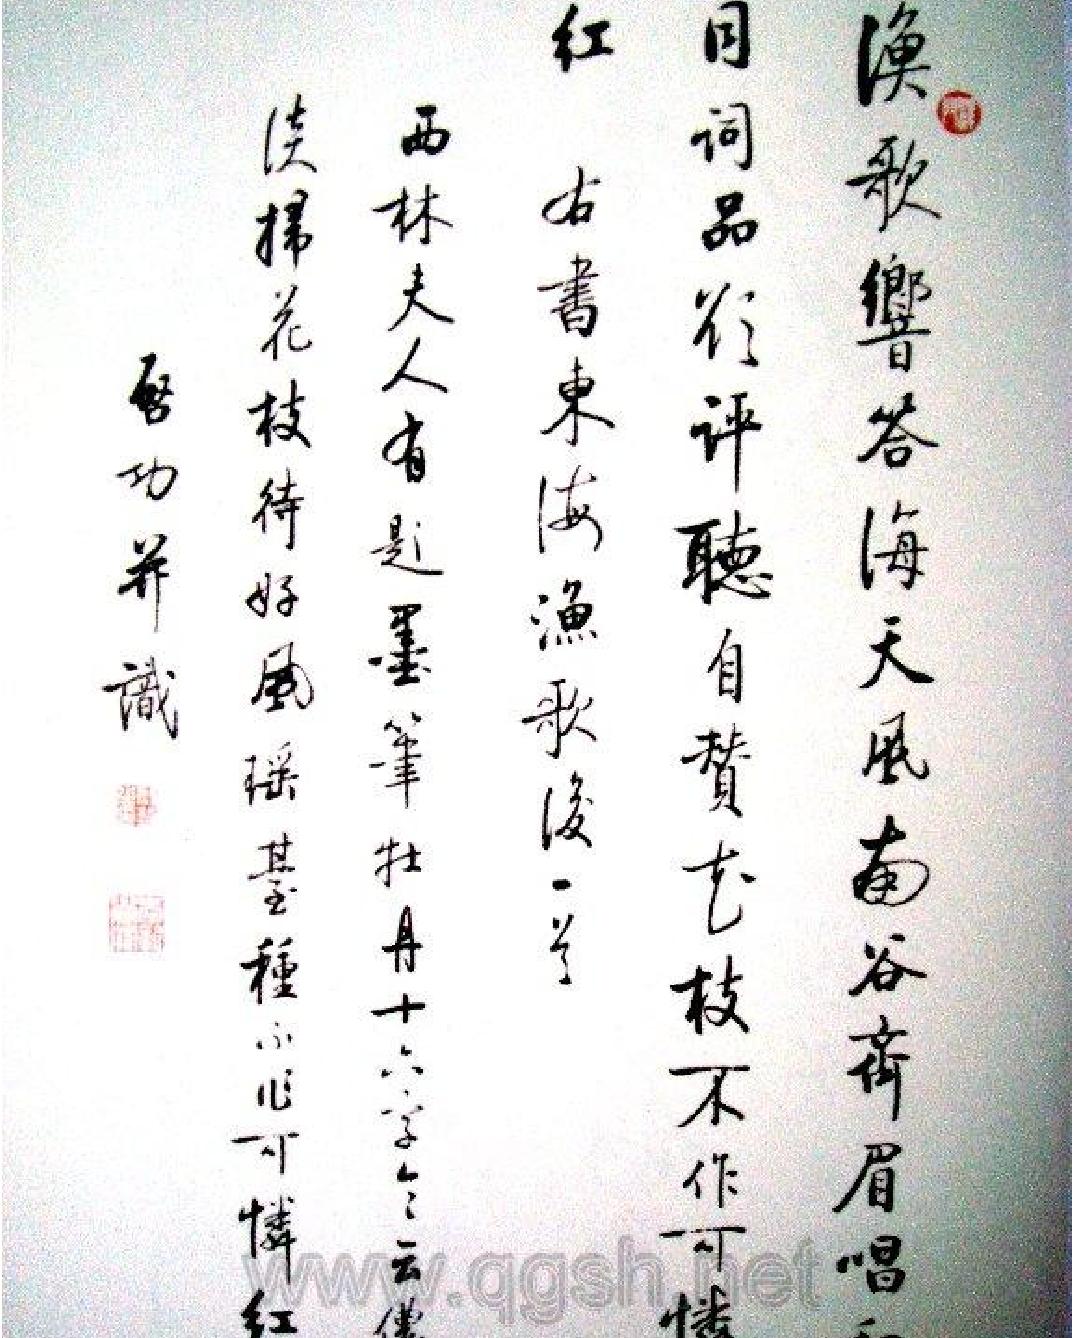 漁歌響答海天風南谷齊眉唱和
同詞品欲評聽自贊花枝不作可憐
紅 右書東海漁歌後一首
西林夫人有題墨筆牡丹十六字令云儂
淡掃花枝待好風瑶臺種不作可憐紅
啓功并識
www.qgsh.net